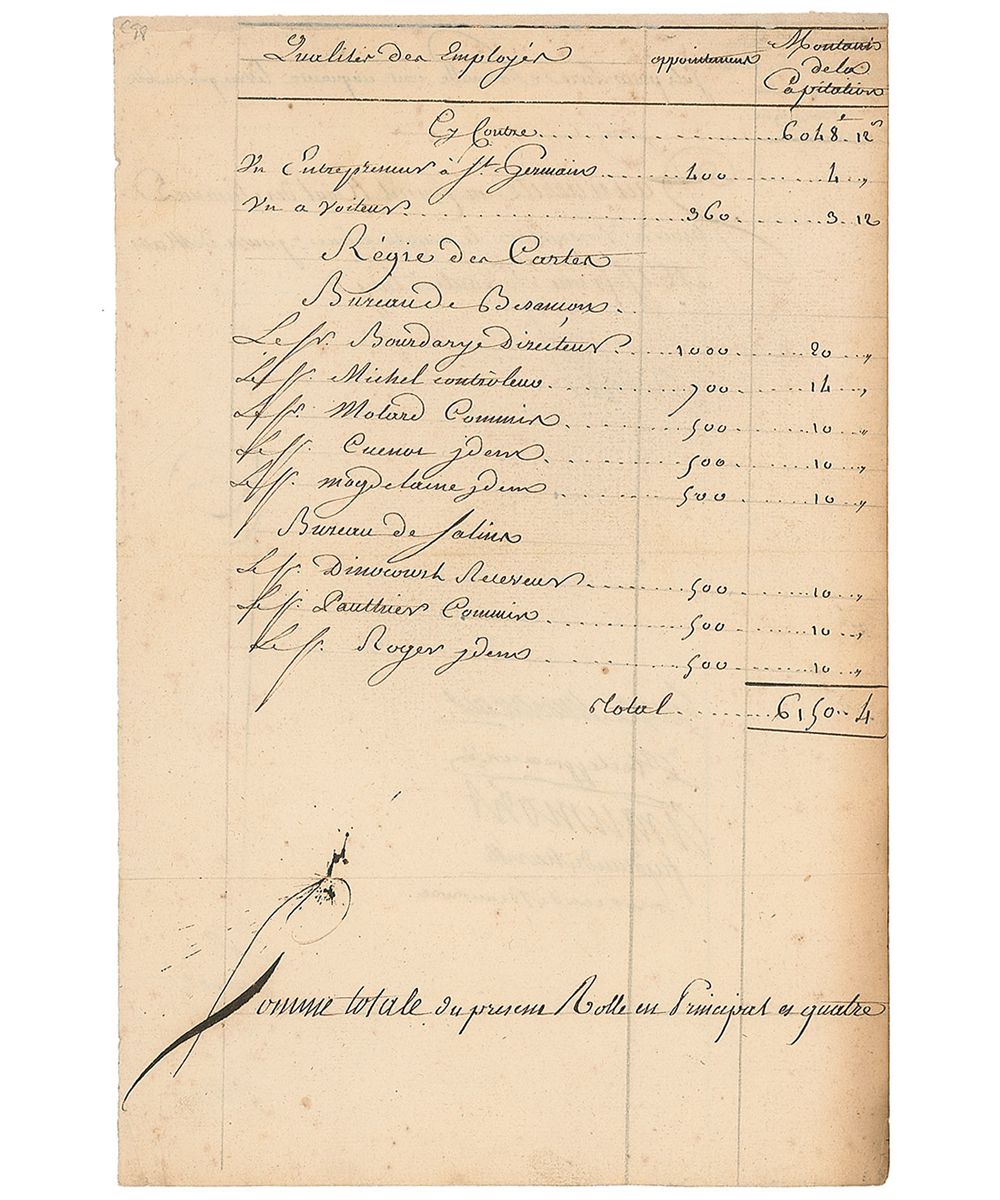 Qualités des Employés appointemens Montant
de la
Capitation
Cy Contre 6048 ₶ 12 s
Un Entrepreneur à St. Germain 400 4 "
Un a Voiteur 360 3 12
Régie des Cartes
Bureau de Besançon
Le Sr. Bourdarye Directeur 1000 20 "
Le Sr. Michel controleur 700 14 "
Le Sr. Motard Commis 500 10 "
Le Sr. Cuenot jdem 500 10 "
Le Sr. Magdelaine jdem 500 10 "
Bureau de Salins
Le Sr. Dinocourt Receveur 500 10 "
Le Sr. Pauthier Commis 500 10 "
Le Sr. Roger jdem 500 10 "
Total 6150 4
Somme totale du present Rolle en Principal et quatre